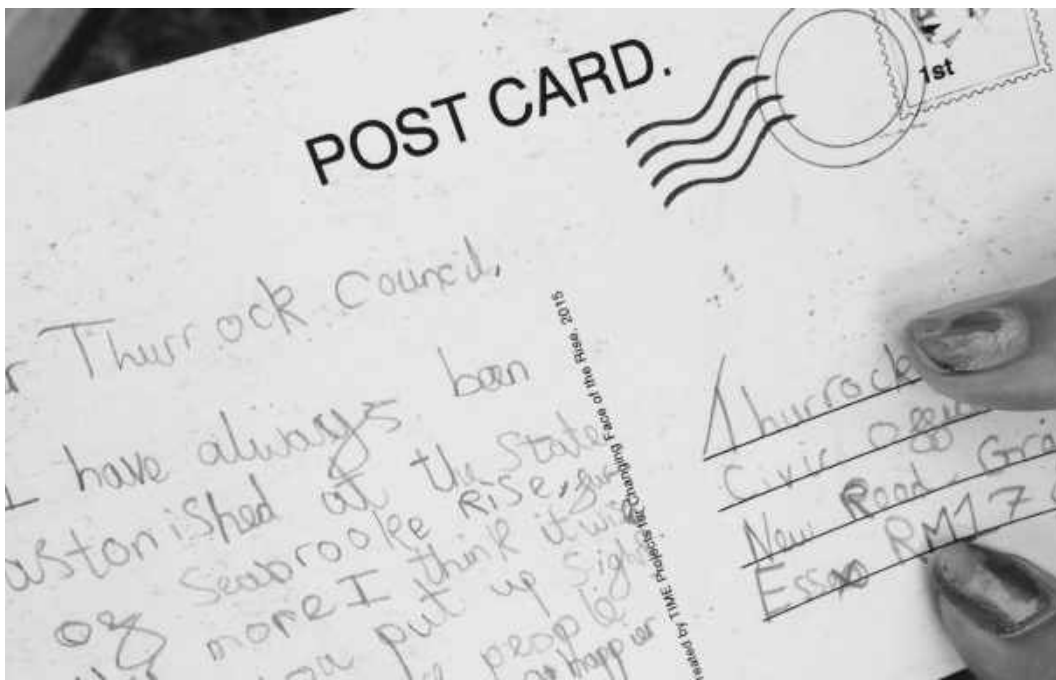 POST CARD.
1st
Thurrock Council,
I have always been
astonished at the State
of Seabrooke RISE, fur
more I think it wis
you put up sigh
people
happier
reated by TIME Projects for Changing Face of the Rise. 2015
Thurrock
Civic Offi
New Road Gra
Essex RM17